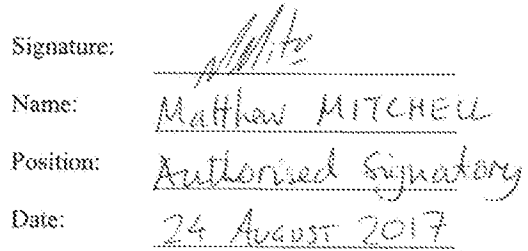 Signature:
Name: Matthew MITCHELL
Position: Authorised Signatory
Date: 24 AUGUST 2017